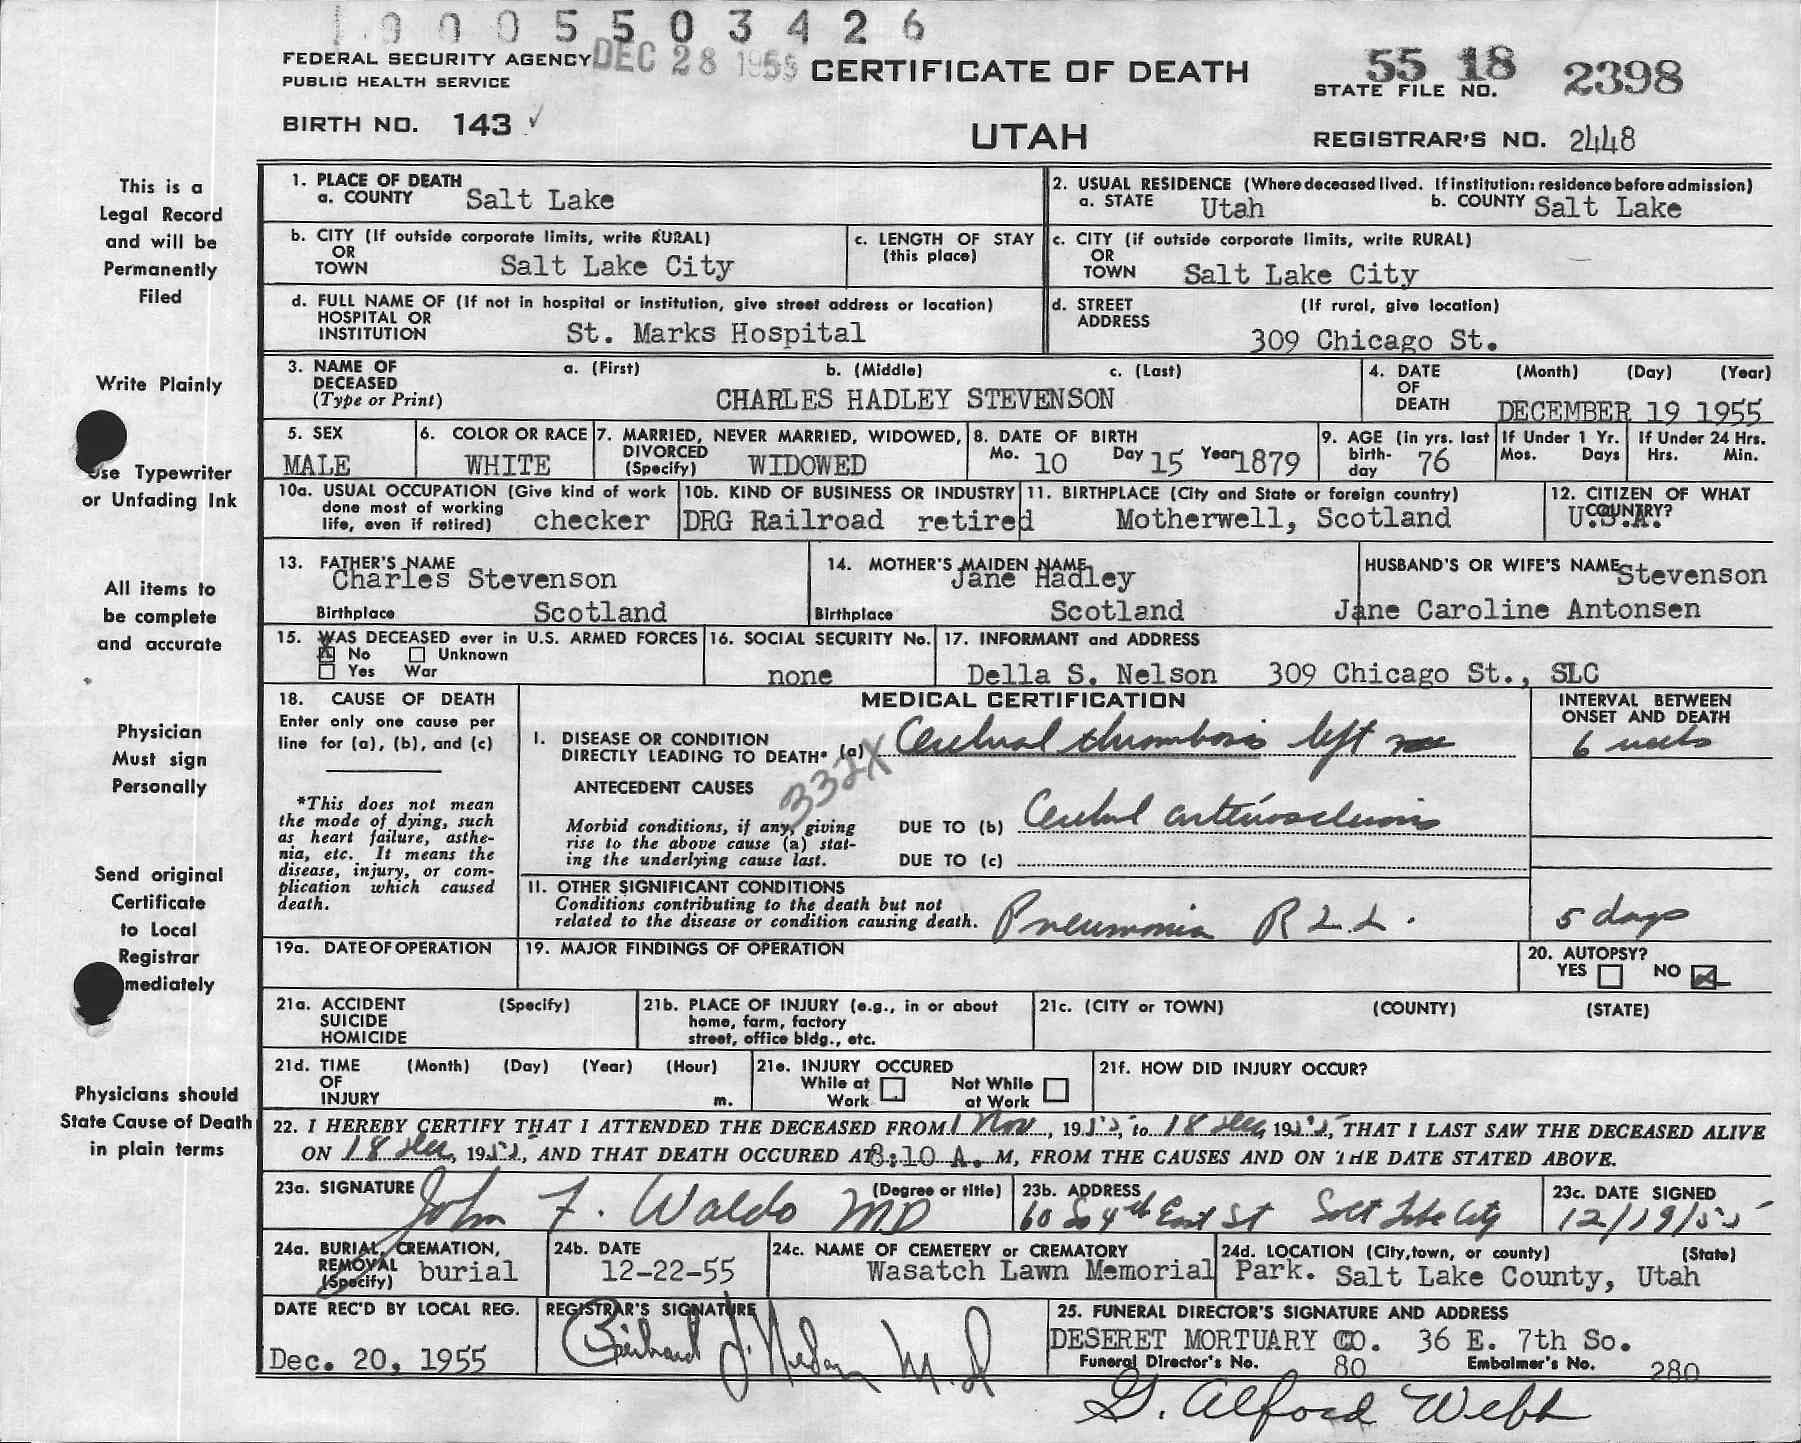 1 0 0 0 5 5 0 3 4 2 6
FEDERAL SECURITY AGENCY DEC 28 1955 CERTIFICATE OF DEATH 55 18 2398
PUBLIC HEALTH SERVICE STATE FILE NO.
BIRTH NO. 143 ✓ UTAH REGISTRAR'S NO. 2448
This is a
Legal Record
and will be
Permanently
Filed
Write Plainly
Use Typewriter
or Unfading Ink
All items to
be complete
and accurate
Physician
Must sign
Personally
Send original
Certificate
to Local
Registrar
mediately
Physicians should
State Cause of Death
in plain terms
1. PLACE OF DEATH
a. COUNTY Salt Lake
2. USUAL RESIDENCE (Where deceased lived. If institution: residence before admission)
a. STATE Utah b. COUNTY Salt Lake
b. CITY (If outside corporate limits, write RURAL)
OR
TOWN Salt Lake City
c. LENGTH OF STAY
(this place)
c. CITY (if outside corporate limits, write RURAL)
OR
TOWN Salt Lake City
d. FULL NAME OF (If not in hospital or institution, give street address or location)
HOSPITAL OR
INSTITUTION St. Marks Hospital
d. STREET (If rural, give location)
ADDRESS
309 Chicago St.
3. NAME OF a. (First) b. (Middle) c. (Last)
DECEASED
(Type or Print) CHARLES HADLEY STEVENSON
4. DATE (Month) (Day) (Year)
OF
DEATH DECEMBER 19 1955
5. SEX
MALE
6. COLOR OR RACE
WHITE
7. MARRIED, NEVER MARRIED, WIDOWED,
DIVORCED
(Specify) WIDOWED
8. DATE OF BIRTH
Mo. 10 Day 15 Year 1879
9. AGE (in yrs. last
birth-
day 76
If Under 1 Yr.
Mos. Days
If Under 24 Hrs.
Hrs. Min.
10a. USUAL OCCUPATION (Give kind of work
done most of working
life, even if retired) checker
10b. KIND OF BUSINESS OR INDUSTRY
DRG Railroad retired
11. BIRTHPLACE (City and State or foreign country)
Motherwell, Scotland
12. CITIZEN OF WHAT
COUNTRY?
U.S.A.
13. FATHER'S NAME
Charles Stevenson
Birthplace Scotland
14. MOTHER'S MAIDEN NAME
Jane Hadley
Birthplace Scotland
HUSBAND'S OR WIFE'S NAME Stevenson
Jane Caroline Antonsen
15. WAS DECEASED ever in U.S. ARMED FORCES
X No Unknown
Yes War
16. SOCIAL SECURITY No.
none
17. INFORMANT and ADDRESS
Della S. Nelson 309 Chicago St., SLC
18. CAUSE OF DEATH
Enter only one cause per
line for (a), (b), and (c)
*This does not mean
the mode of dying, such
as heart failure, asthe-
nia, etc. It means the
disease, injury, or com-
plication which caused
death.
MEDICAL CERTIFICATION
INTERVAL BETWEEN
ONSET AND DEATH
I. DISEASE OR CONDITION
DIRECTLY LEADING TO DEATH* (a) Cerebral thrombosis left
6 weeks
332X
ANTECEDENT CAUSES
Morbid conditions, if any, giving
rise to the above cause (a) stat-
ing the underlying cause last.
DUE TO (b) Cerebral arteriosclerosis
DUE TO (c)
11. OTHER SIGNIFICANT CONDITIONS
Conditions contributing to the death but not
related to the disease or condition causing death. Pneumonia R L L. 5 days
19a. DATE OF OPERATION
19. MAJOR FINDINGS OF OPERATION
20. AUTOPSY?
YES NO X
21a. ACCIDENT (Specify)
SUICIDE
HOMICIDE
21b. PLACE OF INJURY (e.g., in or about
home, farm, factory
street, office bldg., etc.
21c. (CITY or TOWN) (COUNTY) (STATE)
21d. TIME (Month) (Day) (Year) (Hour)
OF
INJURY m.
21e. INJURY OCCURED
While at Not While
Work at Work
21f. HOW DID INJURY OCCUR?
22. I HEREBY CERTIFY THAT I ATTENDED THE DECEASED FROM 1 Nov, 1955, to 18 Dec, 1955, THAT I LAST SAW THE DECEASED ALIVE
ON 18 Dec, 1955, AND THAT DEATH OCCURED AT 8:10 A. M, FROM THE CAUSES AND ON THE DATE STATED ABOVE.
23a. SIGNATURE (Degree or title)
John F. Waldo MD
23b. ADDRESS
60 So 4th East St Salt Lake City
23c. DATE SIGNED
12/19/55
24a. BURIAL, CREMATION,
REMOVAL
(Specify) burial
24b. DATE
12-22-55
24c. NAME OF CEMETERY or CREMATORY
Wasatch Lawn Memorial Park.
24d. LOCATION (City, town, or county) (State)
Salt Lake County, Utah
DATE REC'D BY LOCAL REG.
Dec. 20, 1955
REGISTRAR'S SIGNATURE
M.D
25. FUNERAL DIRECTOR'S SIGNATURE AND ADDRESS
DESERET MORTUARY CO. 36 E. 7th So.
Funeral Director's No. 80 Embalmer's No. 280
G. Alford Webb